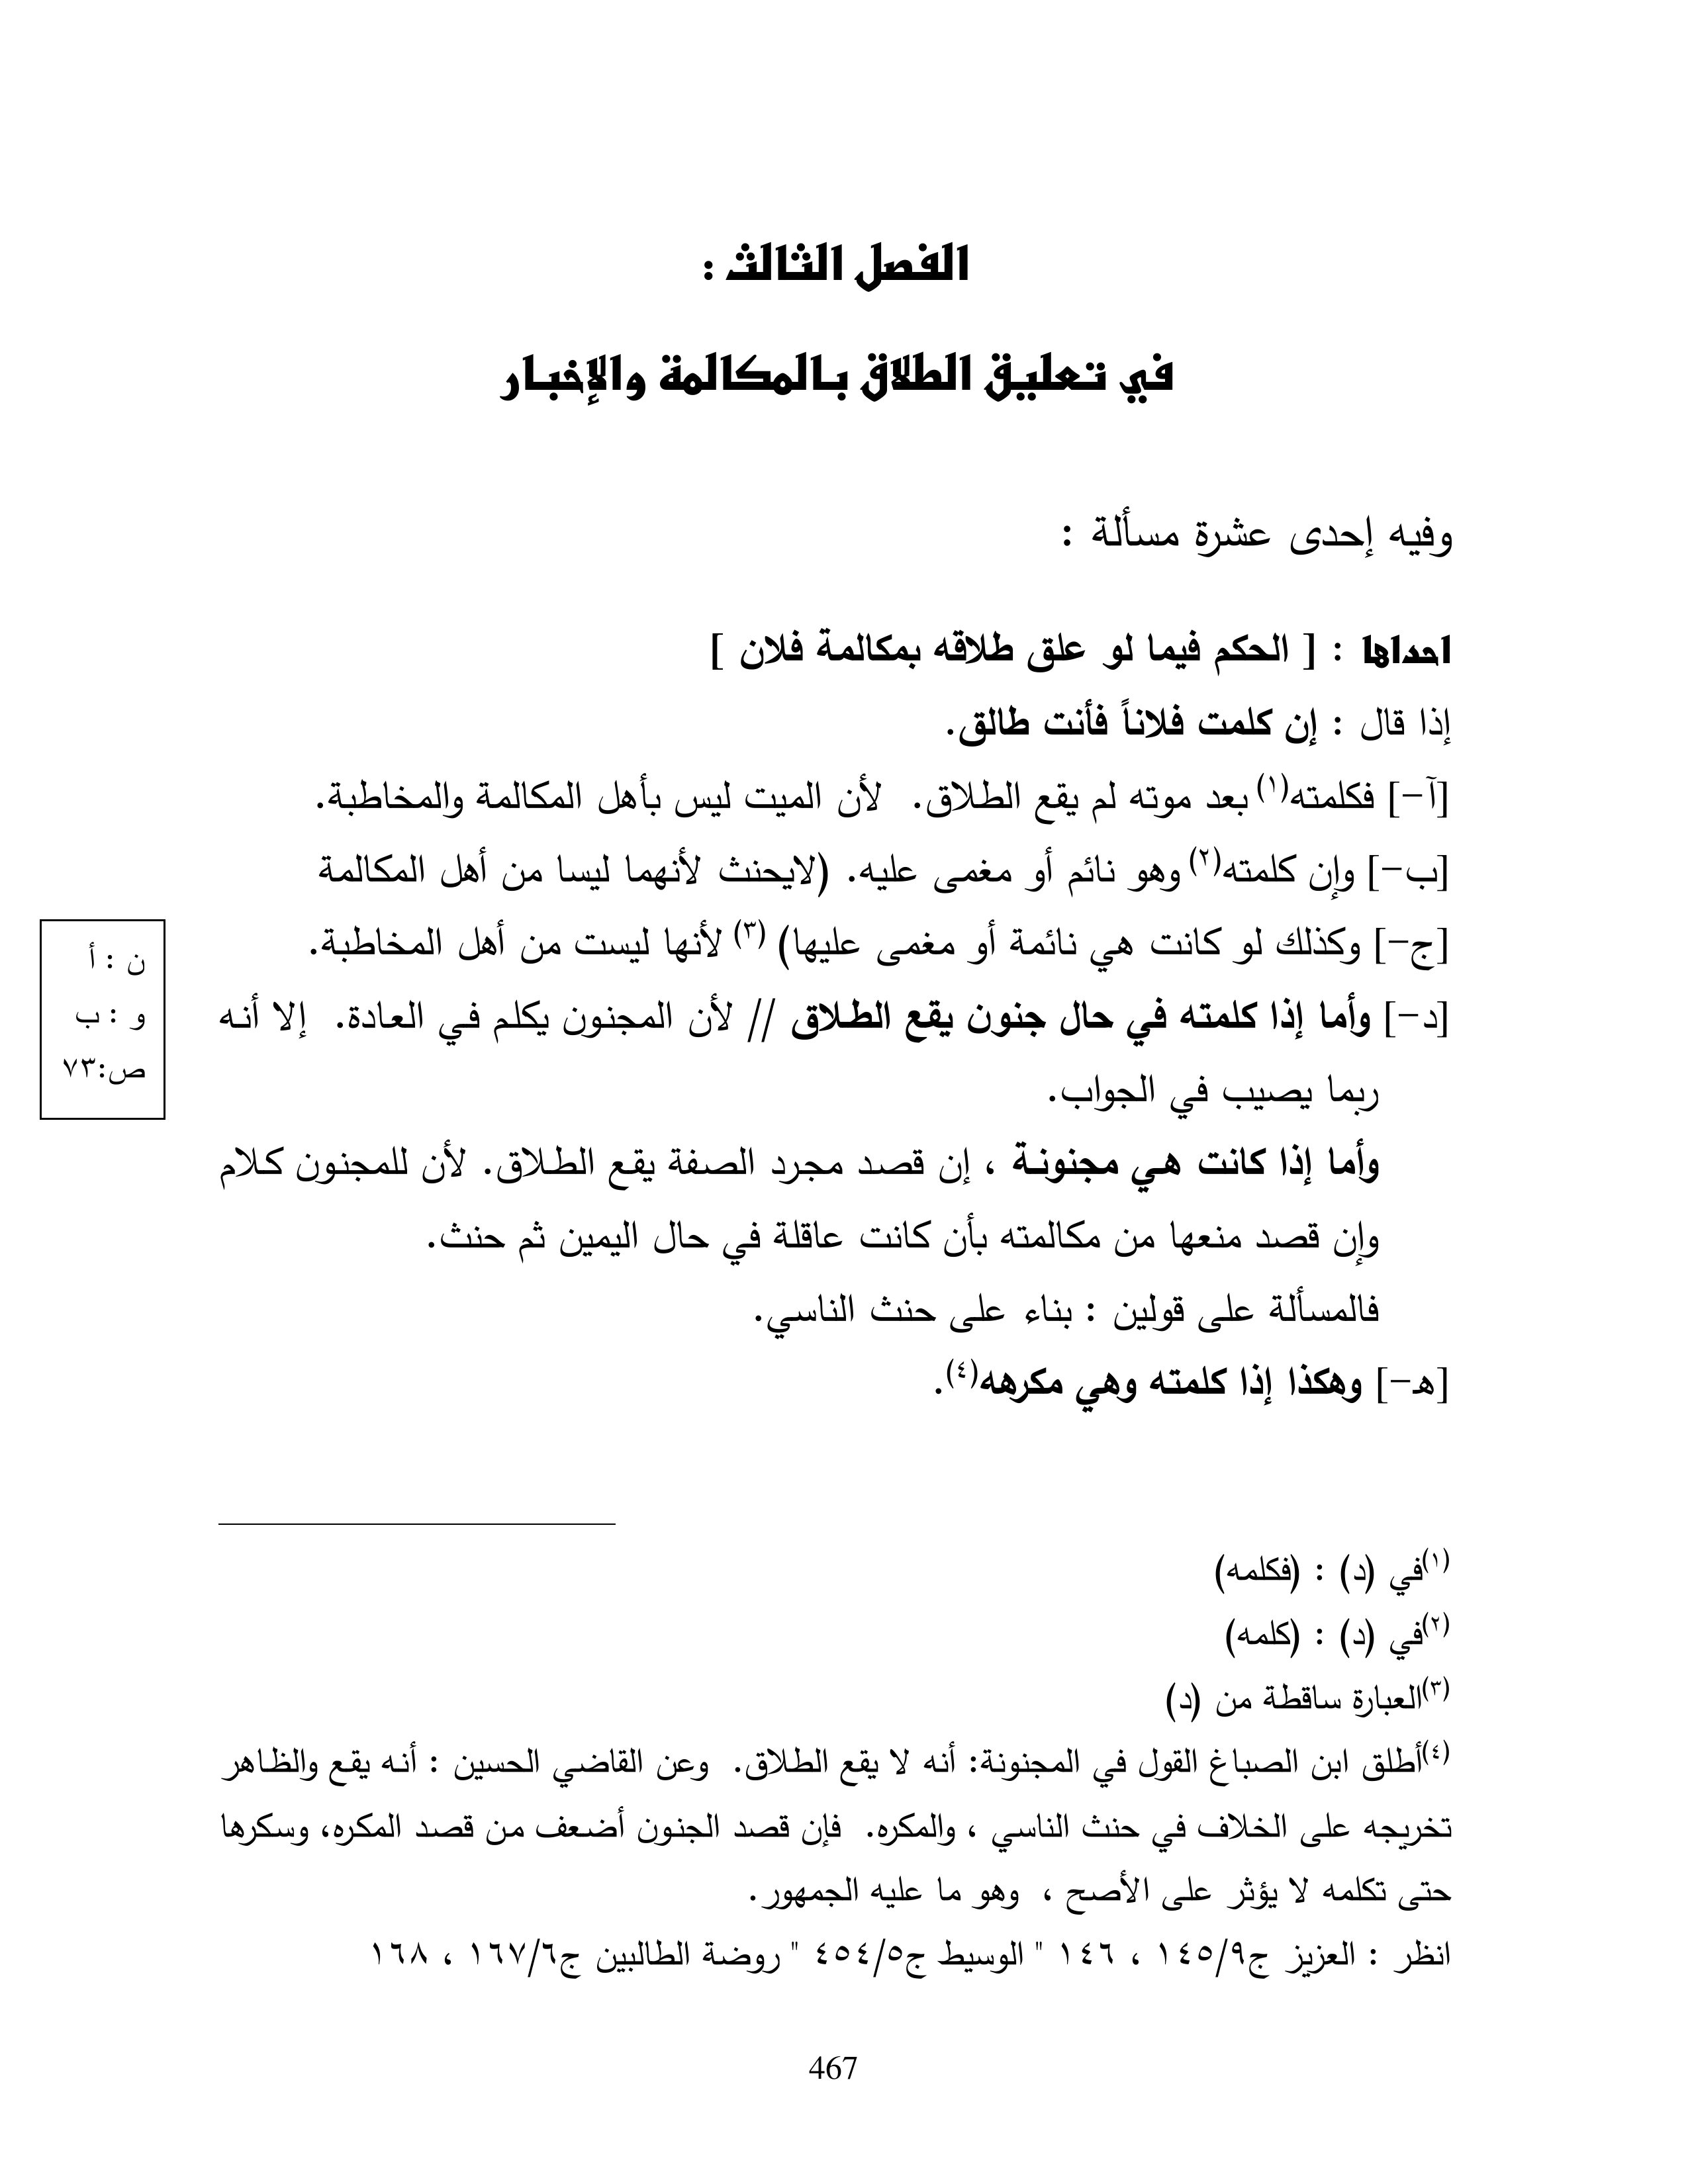 الفصل الثالث :
في تعليق الطلاق بالمكالمة والإخبار
وفيه إحدى عشرة مسألة :
احداها : [ الحكم فيما لو علق طلاقه بمكالمة فلان ]
إذا قال : إن كلمت فلاناً فأنت طالق.
[آ-] فكلمته(١) بعد موته لم يقع الطلاق. لأن الميت ليس بأهل المكالمة والمخاطبة.
[ب-] وإن كلمته(٢) وهو نائم أو مغمى عليه. (لايحنث لأنهما ليسا من أهل المكالمة
[ج-] وكذلك لو كانت هي نائمة أو مغمى عليها) (٣) لأنها ليست من أهل المخاطبة.
[د-] وأما إذا كلمته في حال جنون يقع الطلاق // لأن المجنون يكلم في العادة. إلا أنه
ربما يصيب في الجواب.
وأما إذا كانت هي مجنونة ، إن قصد مجرد الصفة يقع الطلاق. لأن للمجنون كلام
وإن قصد منعها من مكالمته بأن كانت عاقلة في حال اليمين ثم حنث.
فالمسألة على قولين : بناء على حنث الناسي.
[هـ-] وهكذا إذا كلمته وهي مكرهه(٤).
ن : أ
و : ب
ص:٧٣
(١)في (د) : (فكلمه)
(٢)في (د) : (كلمه)
(٣)العبارة ساقطة من (د)
(٤)أطلق ابن الصباغ القول في المجنونة: أنه لا يقع الطلاق. وعن القاضي الحسين : أنه يقع والظاهر
تخريجه على الخلاف في حنث الناسي ، والمكره. فإن قصد الجنون أضعف من قصد المكره، وسكرها
حتى تكلمه لا يؤثر على الأصح ، وهو ما عليه الجمهور.
انظر : العزيز ج٩/١٤٥ ، ١٤٦ " الوسيط ج٥/٤٥٤ " روضة الطالبين ج٦/١٦٧ ، ١٦٨
467